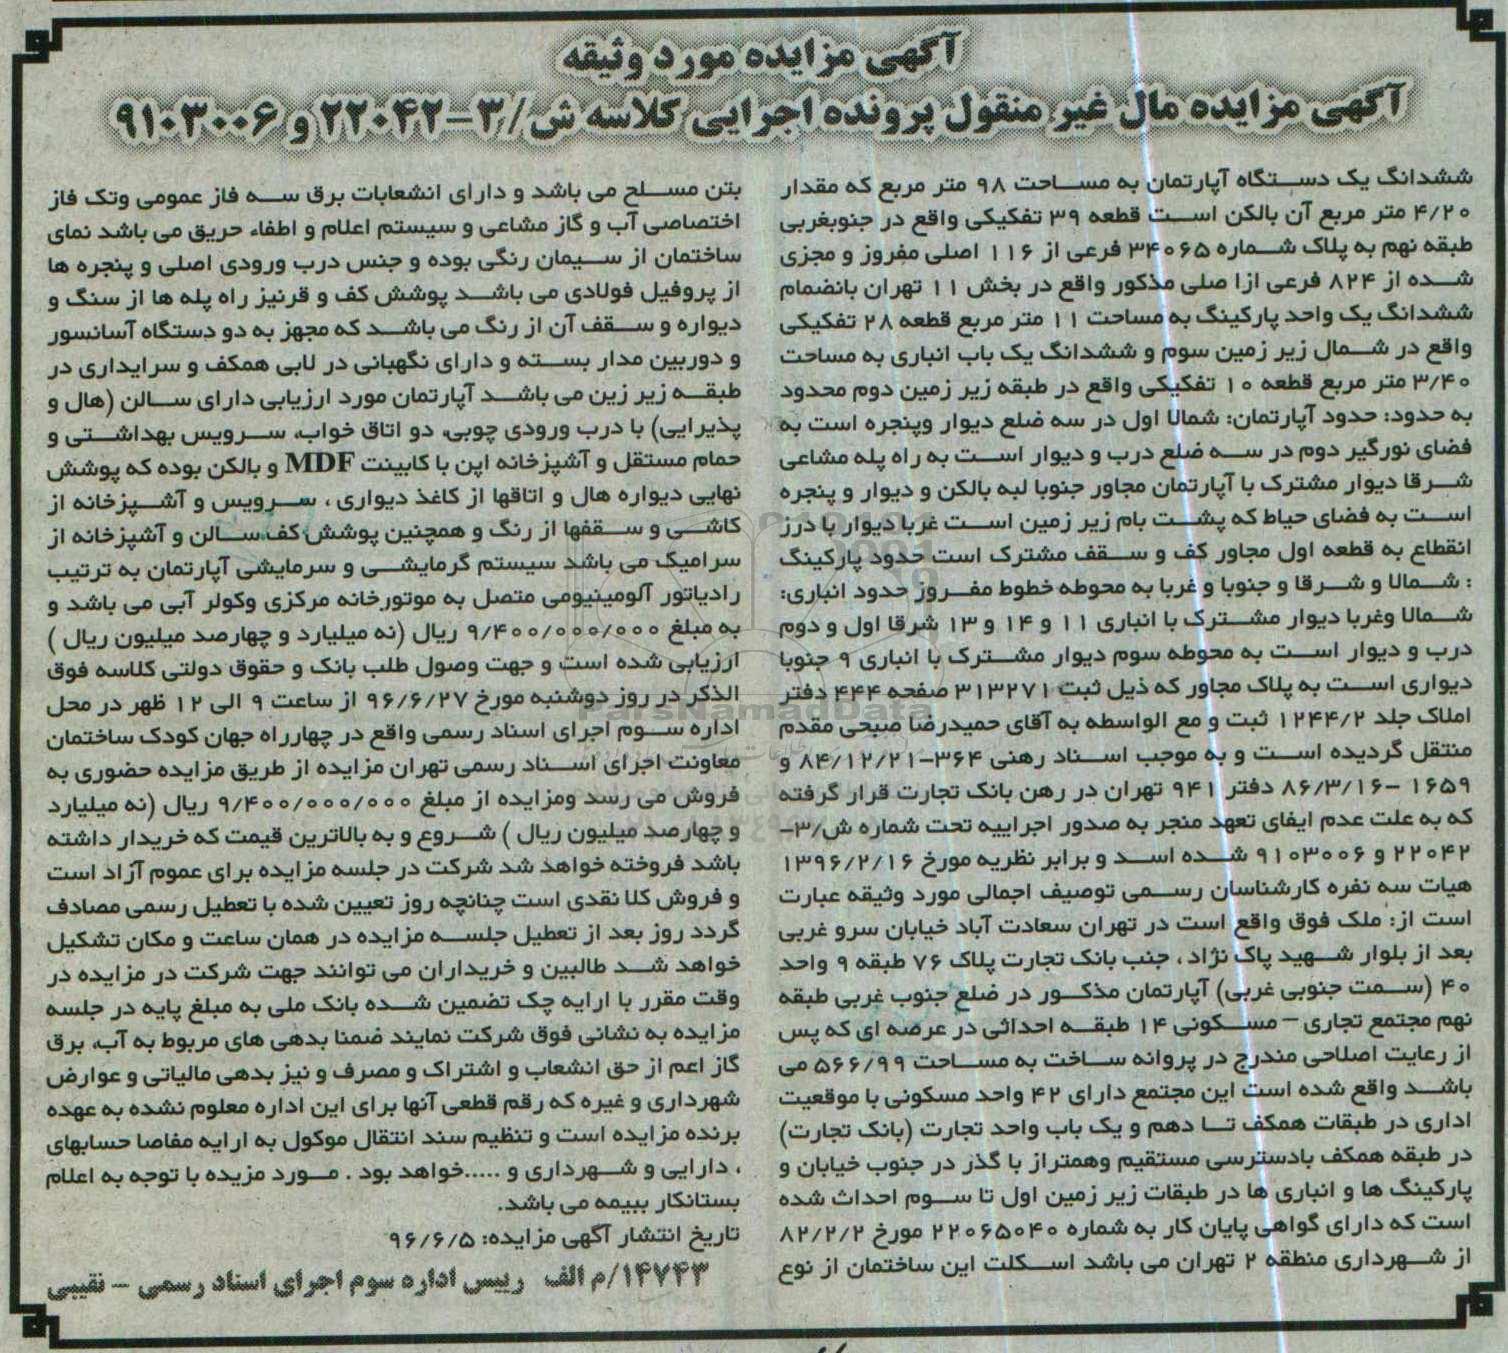 آگهی مزایده مورد وثیقه
آگهی مزایده مال غیر منقول پرونده اجرایی کلاسه ش/۳-۲۲۰۴۲ و ۹۱۰۳۰۰۶
ششدانگ یک دستگاه آپارتمان به مساحت ۹۸ متر مربع که مقدار
۴/۲۰ متر مربع آن بالکن است قطعه ۳۹ تفکیکی واقع در جنوبغربی
طبقه نهم به پلاک شماره ۳۴۰۶۵ فرعی از ۱۱۶ اصلی مفروز و مجزی
شده از ۸۲۴ فرعی ازا صلی مذکور واقع در بخش ۱۱ تهران بانضمام
ششدانگ یک واحد پارکینگ به مساحت ۱۱ متر مربع قطعه ۲۸ تفکیکی
واقع در شمال زیر زمین سوم و ششدانگ یک باب انباری به مساحت
۳/۴۰ متر مربع قطعه ۱۰ تفکیکی واقع در طبقه زیر زمین دوم محدود
به حدود: حدود آپارتمان: شمالا اول در سه ضلع دیوار وپنجره است به
فضای نورگیر دوم در سه ضلع درب و دیوار است به راه پله مشاعی
شرقا دیوار مشترک با آپارتمان مجاور جنوبا لبه بالکن و دیوار و پنجره
است به فضای حیاط که پشت بام زیر زمین است غربا دیوار با درز
انقطاع به قطعه اول مجاور کف و سقف مشترک است حدود پارکینگ
: شمالا و شرقا و جنوبا و غربا به محوطه خطوط مفروز حدود انباری:
شمالا وغربا دیوار مشترک با انباری ۱۱ و ۱۴ و ۱۳ شرقا اول و دوم
درب و دیوار است به محوطه سوم دیوار مشترک با انباری ۹ جنوبا
دیواری است به پلاک مجاور که ذیل ثبت ۳۱۳۲۷۱ صفحه ۴۴۴ دفتر
املاک جلد ۱۲۴۴/۲ ثبت و مع الواسطه به آقای حمیدرضا صبحی مقدم
منتقل گردیده است و به موجب اسناد رهنی ۳۶۴-۸۴/۱۲/۲۱ و
۱۶۵۹ -۸۶/۳/۱۶ دفتر ۹۴۱ تهران در رهن بانک تجارت قرار گرفته
که به علت عدم ایفای تعهد منجر به صدور اجراییه تحت شماره ش/۳-
۲۲۰۴۲ و ۹۱۰۳۰۰۶ شده اسد و برابر نظریه مورخ ۱۳۹۶/۲/۱۶
هیات سه نفره کارشناسان رسمی توصیف اجمالی مورد وثیقه عبارت
است از: ملک فوق واقع است در تهران سعادت آباد خیابان سرو غربی
بعد از بلوار شهید پاک نژاد ، جنب بانک تجارت پلاک ۷۶ طبقه ۹ واحد
۴۰ (سمت جنوبی غربی) آپارتمان مذکور در ضلع جنوب غربی طبقه
نهم مجتمع تجاری – مسکونی ۱۴ طبقه احداثی در عرصه ای که پس
از رعایت اصلاحی مندرج در پروانه ساخت به مساحت ۵۶۶/۹۹ می
باشد واقع شده است این مجتمع دارای ۴۲ واحد مسکونی با موقعیت
اداری در طبقات همکف تا دهم و یک باب واحد تجارت (بانک تجارت)
در طبقه همکف بادسترسی مستقیم وهمتراز با گذر در جنوب خیابان و
پارکینگ ها و انباری ها در طبقات زیر زمین اول تا سوم احداث شده
است که دارای گواهی پایان کار به شماره ۲۲۰۶۵۰۴۰ مورخ ۸۲/۲/۲
از شهرداری منطقه ۲ تهران می باشد اسکلت این ساختمان از نوع
بتن مسلح می باشد و دارای انشعابات برق سه فاز عمومی وتک فاز
اختصاصی آب و گاز مشاعی و سیستم اعلام و اطفاء حریق می باشد نمای
ساختمان از سیمان رنگی بوده و جنس درب ورودی اصلی و پنجره ها
از پروفیل فولادی می باشد پوشش کف و قرنیز راه پله ها از سنگ و
دیواره و سقف آن از رنگ می باشد که مجهز به دو دستگاه آسانسور
و دوربین مدار بسته و دارای نگهبانی در لابی همکف و سرایداری در
طبقه زیر زین می باشد آپارتمان مورد ارزیابی دارای سالن (هال و
پذیرایی) با درب ورودی چوبی، دو اتاق خواب، سرویس بهداشتی و
حمام مستقل و آشپزخانه اپن با کابینت MDF و بالکن بوده که پوشش
نهایی دیواره هال و اتاقها از کاغذ دیواری ، سرویس و آشپزخانه از
کاشی و سقفها از رنگ و همچنین پوشش کف سالن و آشپزخانه از
سرامیک می باشد سیستم گرمایشی و سرمایشی آپارتمان به ترتیب
رادیاتور آلومینیومی متصل به موتورخانه مرکزی وکولر آبی می باشد و
به مبلغ ۹/۴۰۰/۰۰۰/۰۰۰ ریال (نه میلیارد و چهارصد میلیون ریال )
ارزیابی شده است و جهت وصول طلب بانک و حقوق دولتی کلاسه فوق
الذکر در روز دوشنبه مورخ ۹۶/۶/۲۷ از ساعت ۹ الی ۱۲ ظهر در محل
اداره سوم اجرای اسناد رسمی واقع در چهارراه جهان کودک ساختمان
معاونت اجرای اسناد رسمی تهران مزایده از طریق مزایده حضوری به
فروش می رسد ومزایده از مبلغ ۹/۴۰۰/۰۰۰/۰۰۰ ریال (نه میلیارد
و چهارصد میلیون ریال ) شروع و به بالاترین قیمت که خریدار داشته
باشد فروخته خواهد شد شرکت در جلسه مزایده برای عموم آزاد است
و فروش کلا نقدی است چنانچه روز تعیین شده با تعطیل رسمی مصادف
گردد روز بعد از تعطیل جلسه مزایده در همان ساعت و مکان تشکیل
خواهد شد طالبین و خریداران می توانند جهت شرکت در مزایده در
وقت مقرر با ارایه چک تضمین شده بانک ملی به مبلغ پایه در جلسه
مزایده به نشانی فوق شرکت نمایند ضمنا بدهی های مربوط به آب، برق
گاز اعم از حق انشعاب و اشتراک و مصرف و نیز بدهی مالیاتی و عوارض
شهرداری و غیره که رقم قطعی آنها برای این اداره معلوم نشده به عهده
برنده مزایده است و تنظیم سند انتقال موکول به ارایه مفاصا حسابهای
، دارایی و شهرداری و .....خواهد بود . مورد مزیده با توجه به اعلام
بستانکار ببیمه می باشد.
تاریخ انتشار آگهی مزایده: ۹۶/۶/۵
۱۴۷۴۳/م الف رییس اداره سوم اجرای اسناد رسمی – نقیبی
ParsNamadData